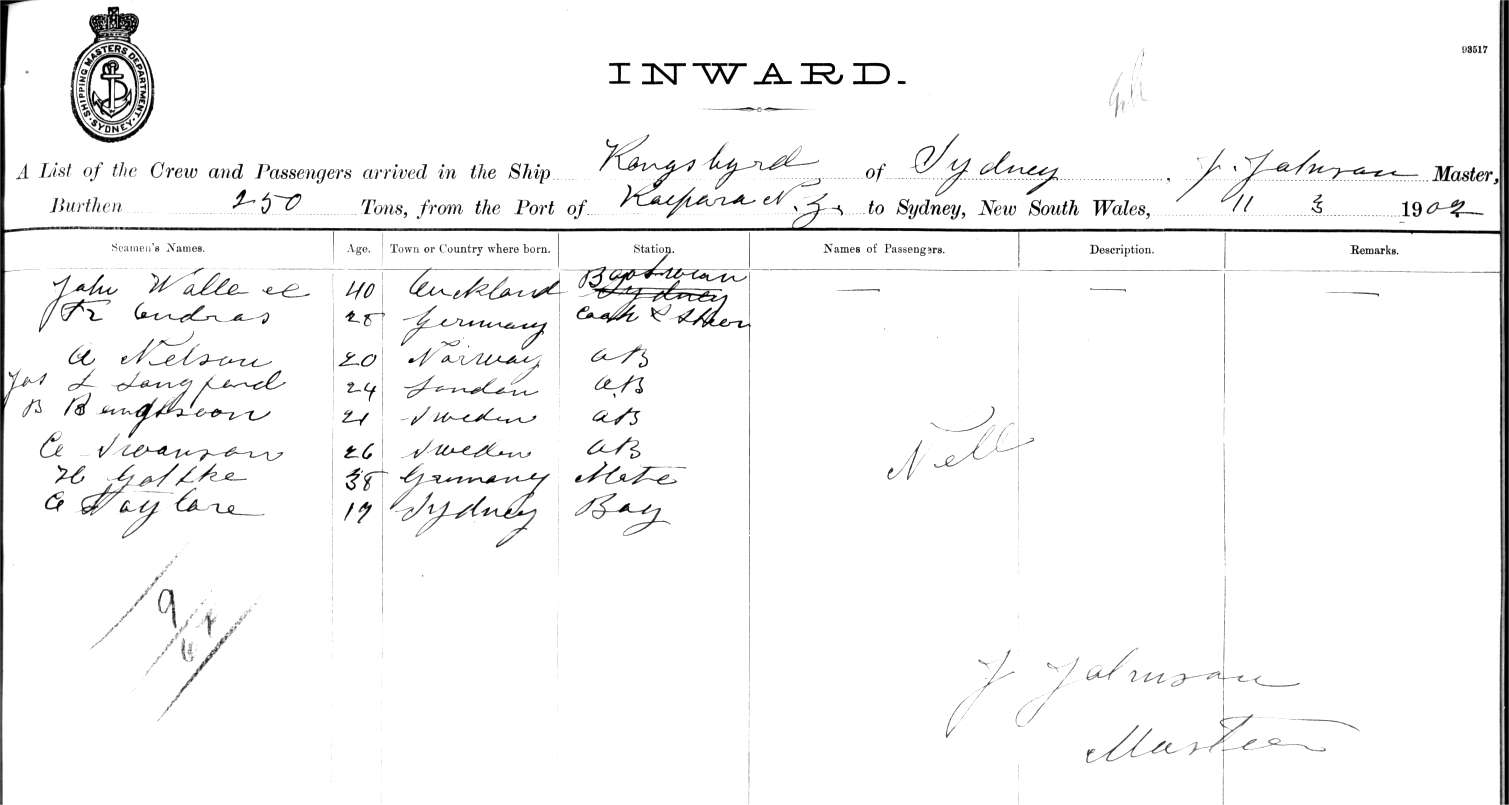 93517
SHIPPING MASTERS DEPARTMENT. SYDNEY
INWARD.
A List of the Crew and Passengers arrived in the Ship Kongsbyrd of Sydney, J. Johnson Master,
Burthen 250 Tons, from the Port of Kaipara N.Z. to Sydney, New South Wales, 11 3 1902
Seamen's Names. Age. Town or Country where born. Station. Names of Passengers. Description. Remarks.
John Wallace 40 Auckland Boatswean Sydney — — —
Fr Andras 28 Germany Cook & Stewr
A Nelson 20 Norway AB
Jas L Langford 24 London AB
B Bengtsson 21 Sweden AB
C Swanson 26 Sweden AB
Nell
H Gothke 38 Germany Mate
C Taylare 17 Sydney Boy
9
J Johnson
Master